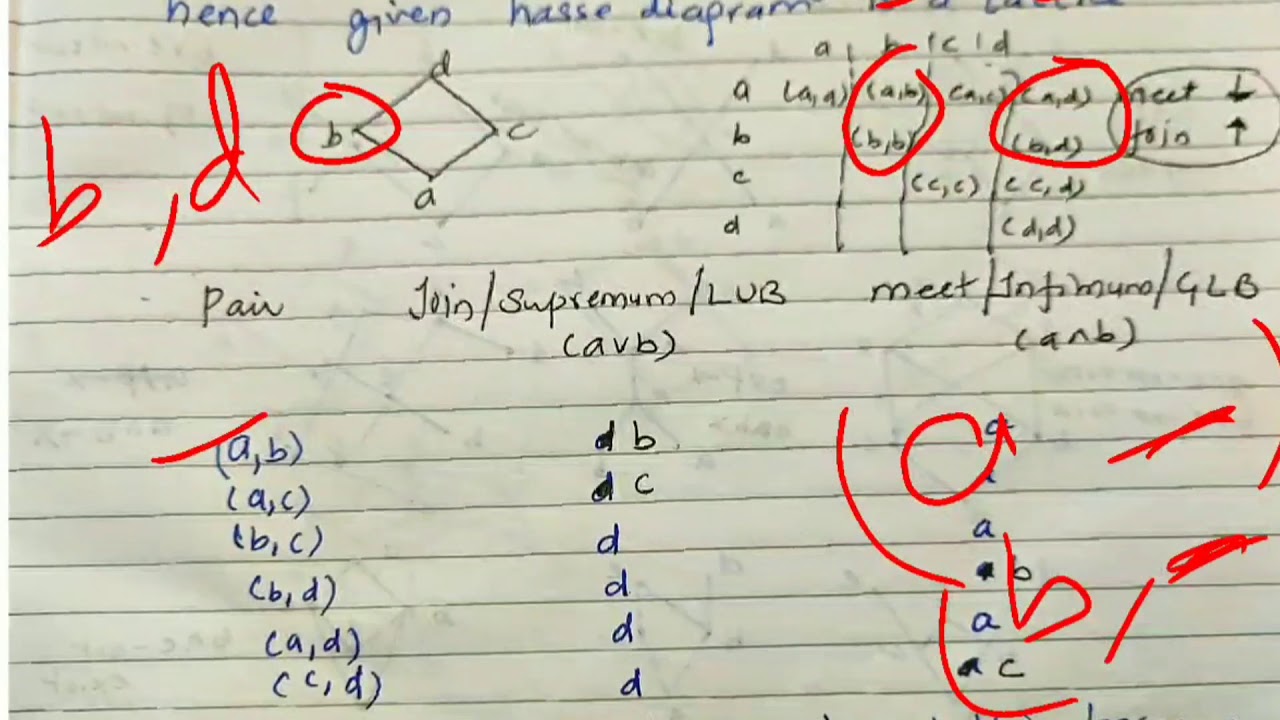 hence given hasse diagram is a
a | b | c | d
a (a,a) (a,b) (a,c) (a,d) meet ↓
b (b,b) (b,d) join ↑
c (c,c) (c,d)
d (d,d)
d
b c
a
b , d
Pair Join/Supremum/LUB meet/Infimum/GLB
(a∨b) (a∧b)
(a,b) b a
(a,c) c
(b,c) d a
(b,d) d b
(a,d) d a
(c,d) d c
b ,